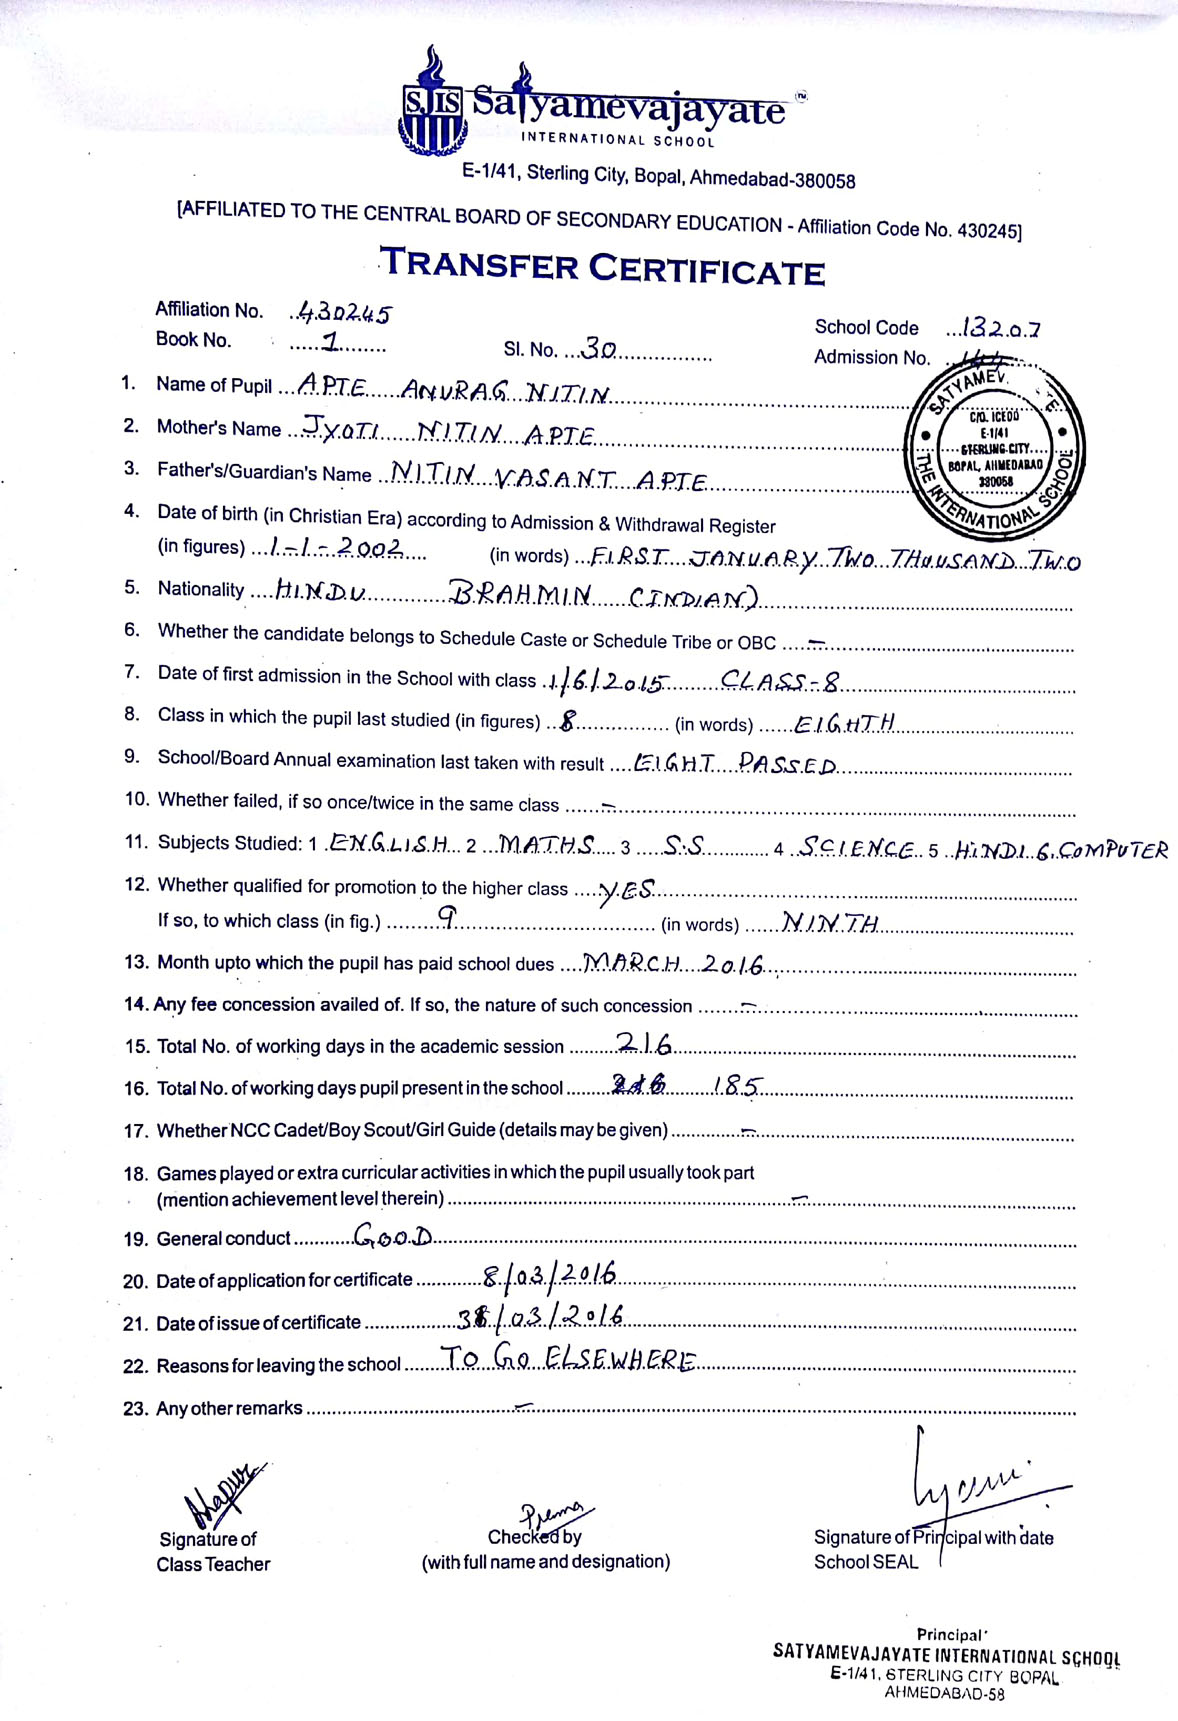 SJIS Satyamevajayate TM
INTERNATIONAL SCHOOL
E-1/41, Sterling City, Bopal, Ahmedabad-380058
[AFFILIATED TO THE CENTRAL BOARD OF SECONDARY EDUCATION - Affiliation Code No. 430245]
TRANSFER CERTIFICATE
Affiliation No. 430245
School Code 13207
Book No. 1 Sl. No. 30
Admission No.
SATYAMEV. TE
THE INTERNATIONAL SCHOOL
C/O. ICEDO
E-1/41
STERLING CITY
BOPAL, AHMEDABAD
380058
1. Name of Pupil APTE ANURAG NITIN
2. Mother's Name JYOTI NITIN APTE
3. Father's/Guardian's Name NITIN VASANT APTE
4. Date of birth (in Christian Era) according to Admission & Withdrawal Register
(in figures) 1-1-2002 (in words) FIRST JANUARY TWO THOUSAND TWO
5. Nationality HINDU BRAHMIN (INDIAN)
6. Whether the candidate belongs to Schedule Caste or Schedule Tribe or OBC –
7. Date of first admission in the School with class 1/6/2015 CLASS-8
8. Class in which the pupil last studied (in figures) 8 (in words) EIGHTH
9. School/Board Annual examination last taken with result EIGHT PASSED
10. Whether failed, if so once/twice in the same class –
11. Subjects Studied: 1 ENGLISH 2 MATHS 3 S.S 4 SCIENCE 5 HINDI 6. COMPUTER
12. Whether qualified for promotion to the higher class YES
If so, to which class (in fig.) 9 (in words) NINTH
13. Month upto which the pupil has paid school dues MARCH 2016
14. Any fee concession availed of. If so, the nature of such concession –
15. Total No. of working days in the academic session 216
16. Total No. of working days pupil present in the school 216 185
17. Whether NCC Cadet/Boy Scout/Girl Guide (details may be given) –
18. Games played or extra curricular activities in which the pupil usually took part
(mention achievement level therein) –
19. General conduct GOOD
20. Date of application for certificate 8/03/2016
21. Date of issue of certificate 31/03/2016
22. Reasons for leaving the school TO GO ELSEWHERE
23. Any other remarks –
Prema
Signature of Class Teacher
Checked by
(with full name and designation)
Signature of Principal with date
School SEAL
Principal
SATYAMEVAJAYATE INTERNATIONAL SCHOOL
E-1/41, STERLING CITY BOPAL
AHMEDABAD-58